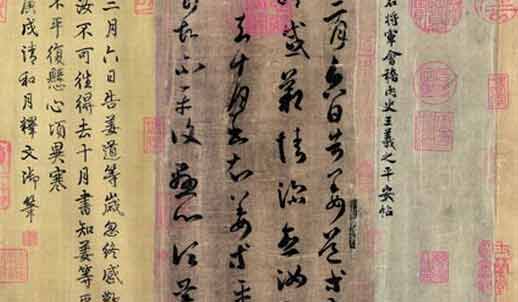 右將軍會稽内史王羲之平安帖
二月六日告姜道等
感歎情深念汝
去十月書知姜等平
不平復懸心頃異
二月六日告姜道等歲忽終感歎
汝不可往得去十月書知姜等平
不平復懸心頃異寒
庚戌清和月釋文御筆